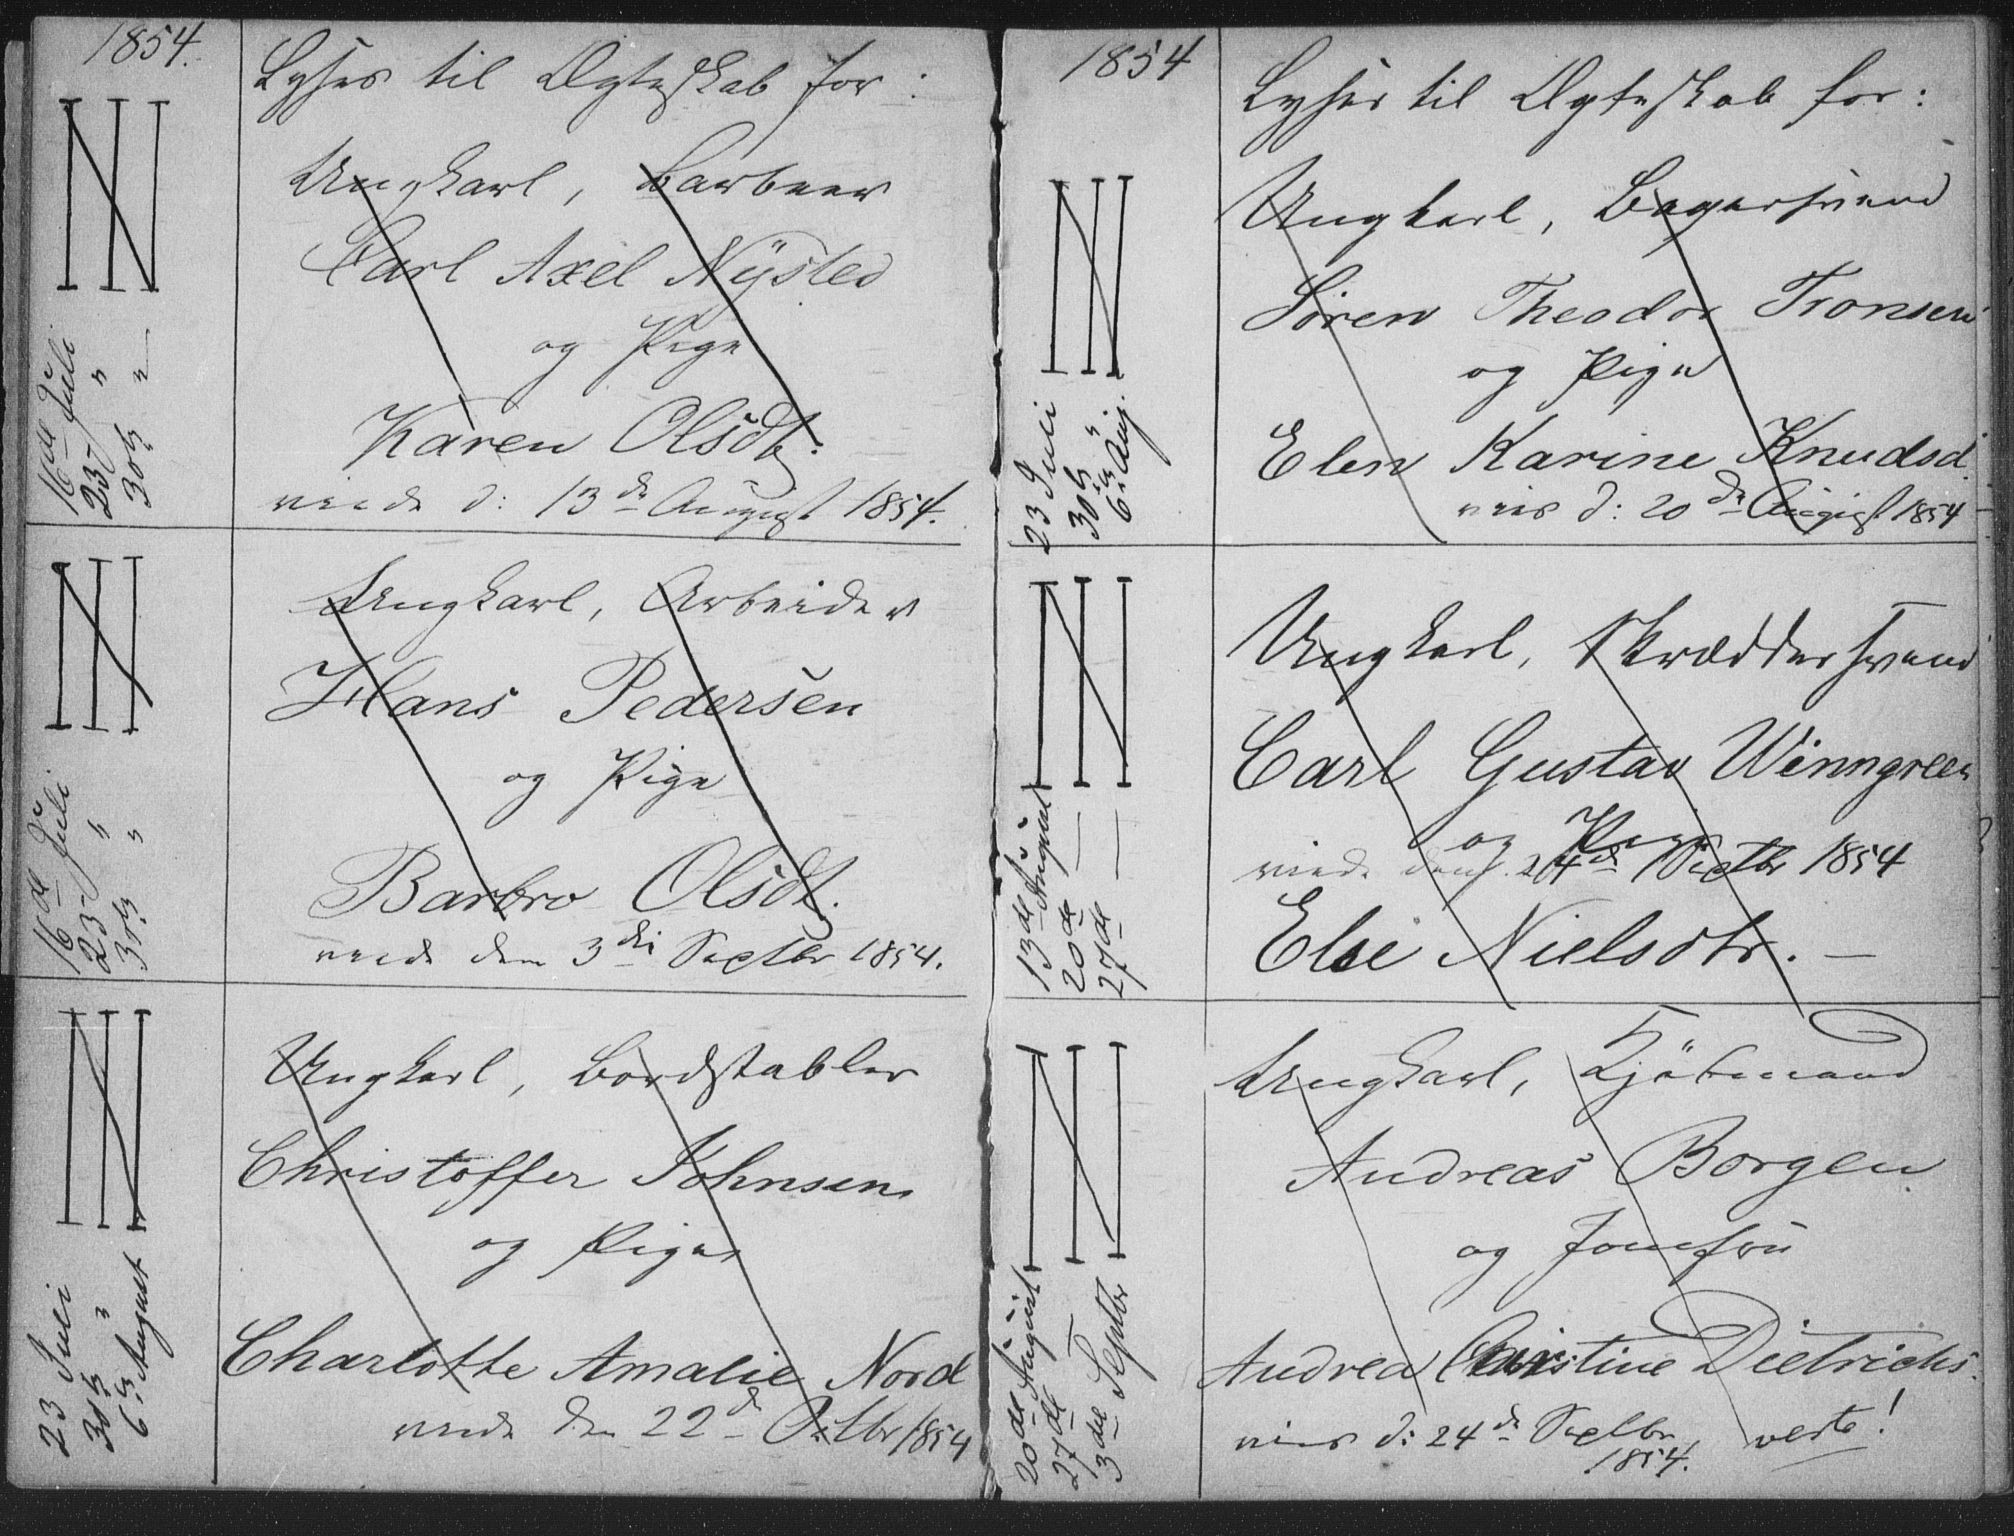 1854.
Lyses til Ægteskab for:
Ungkarl, Barbeer
Carl Axel Nÿsted
og Pige
Karen Olsdtr.
viede d: 13de August 1854.
16de Juli
23 "
30te "
Ungkarl, Arbeider
Hans Pedersen
og Pige
Barbro Olsdt.
viede dem 3die Septbr 1854.
16de Juli
23 "
30te "
Ungkarl, Bordstabler
Christoffer Johnsen
og Pige
Charlotte Amalie Nord
viede den 22de Octbr 1854
23 Juli
30te "
6te August
1854
Lyses til Ægteskab for:
Ungkarl, Bagersvend
Sören Theodor Tronsen
og Pige
Elen Karine Knudsd
vies d: 20de August 1854
23 Juli
30te "
6te Aug.
Ungkarl, Skræddersvend
Carl Gustav Winngreen
og Pige
viede den 24de Septbr 1854
Else Nielsdtr. —
13de August
20de —
27de —
Ungkarl, Kjöbmand
Andreas Borgen
og Jomfru
Andrea Christine Dietrichs.
vies d: 24de Septbr
1854.
verte!
20de August
27de "
3die Septbr